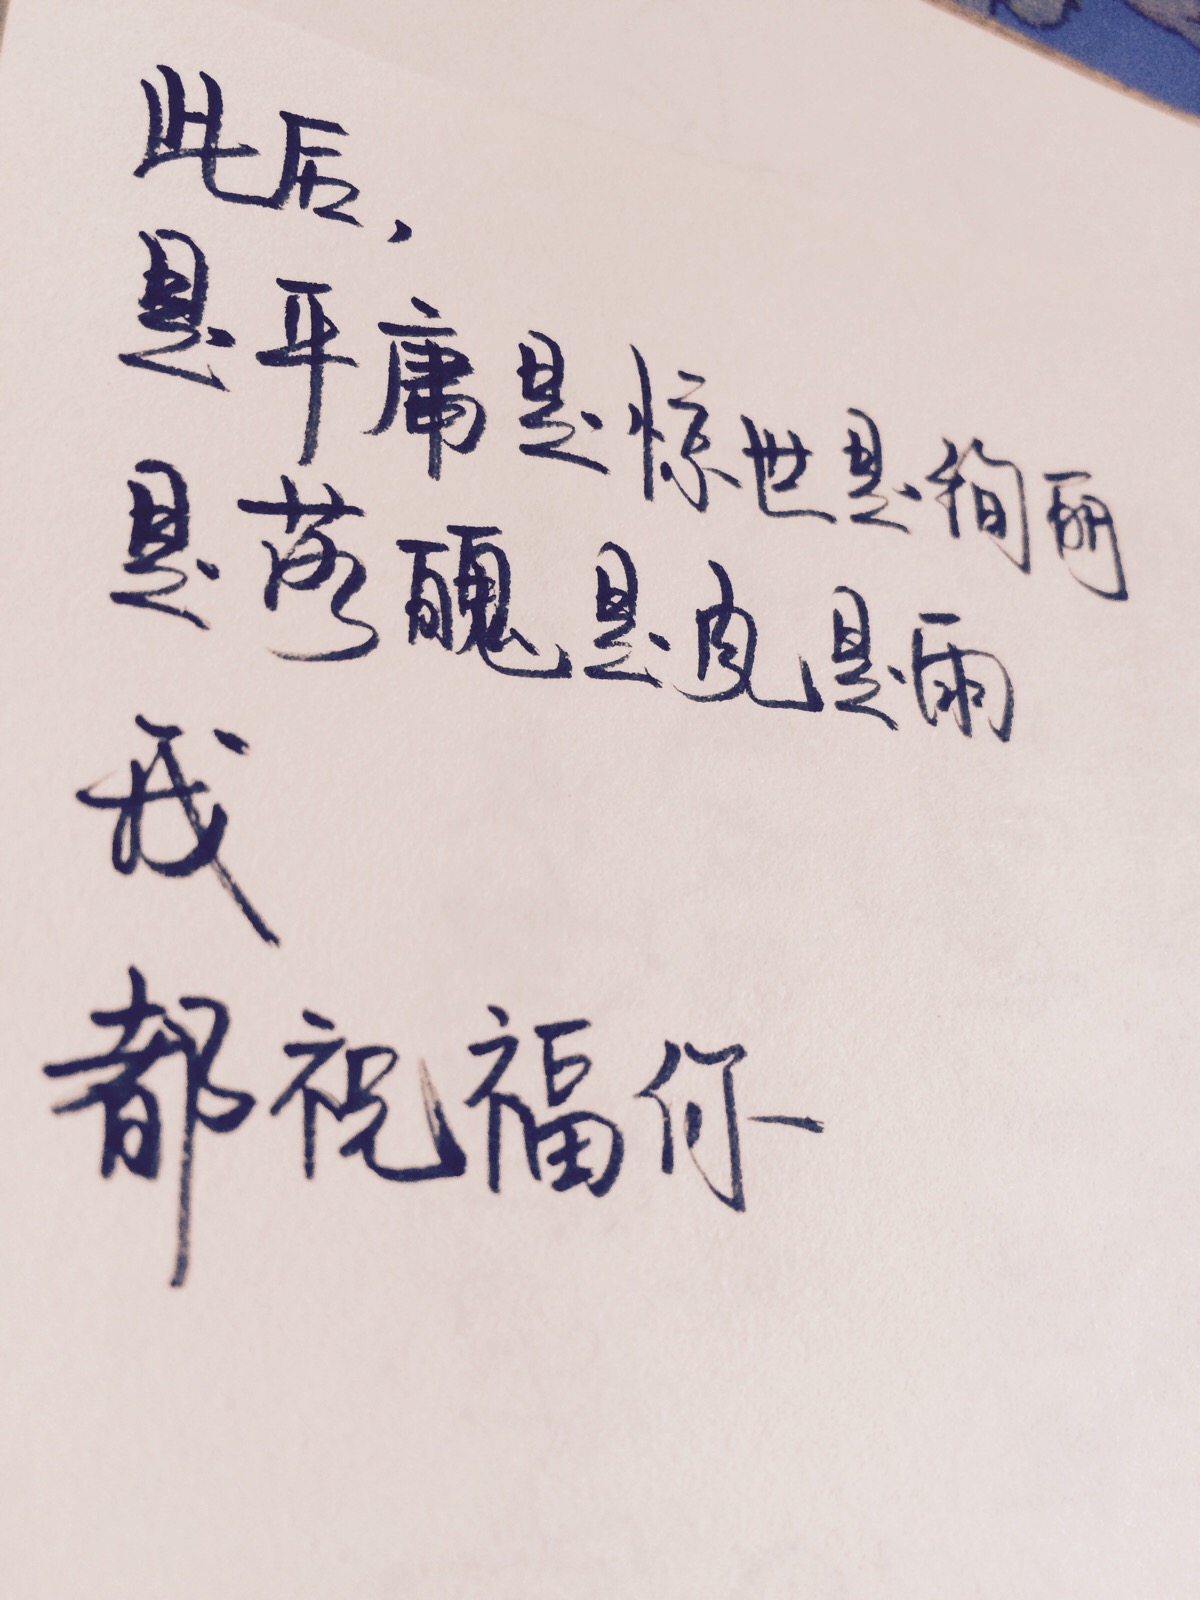 此后,
是平庸是惊世是绚丽
是落魄是风是雨
我
都祝福你